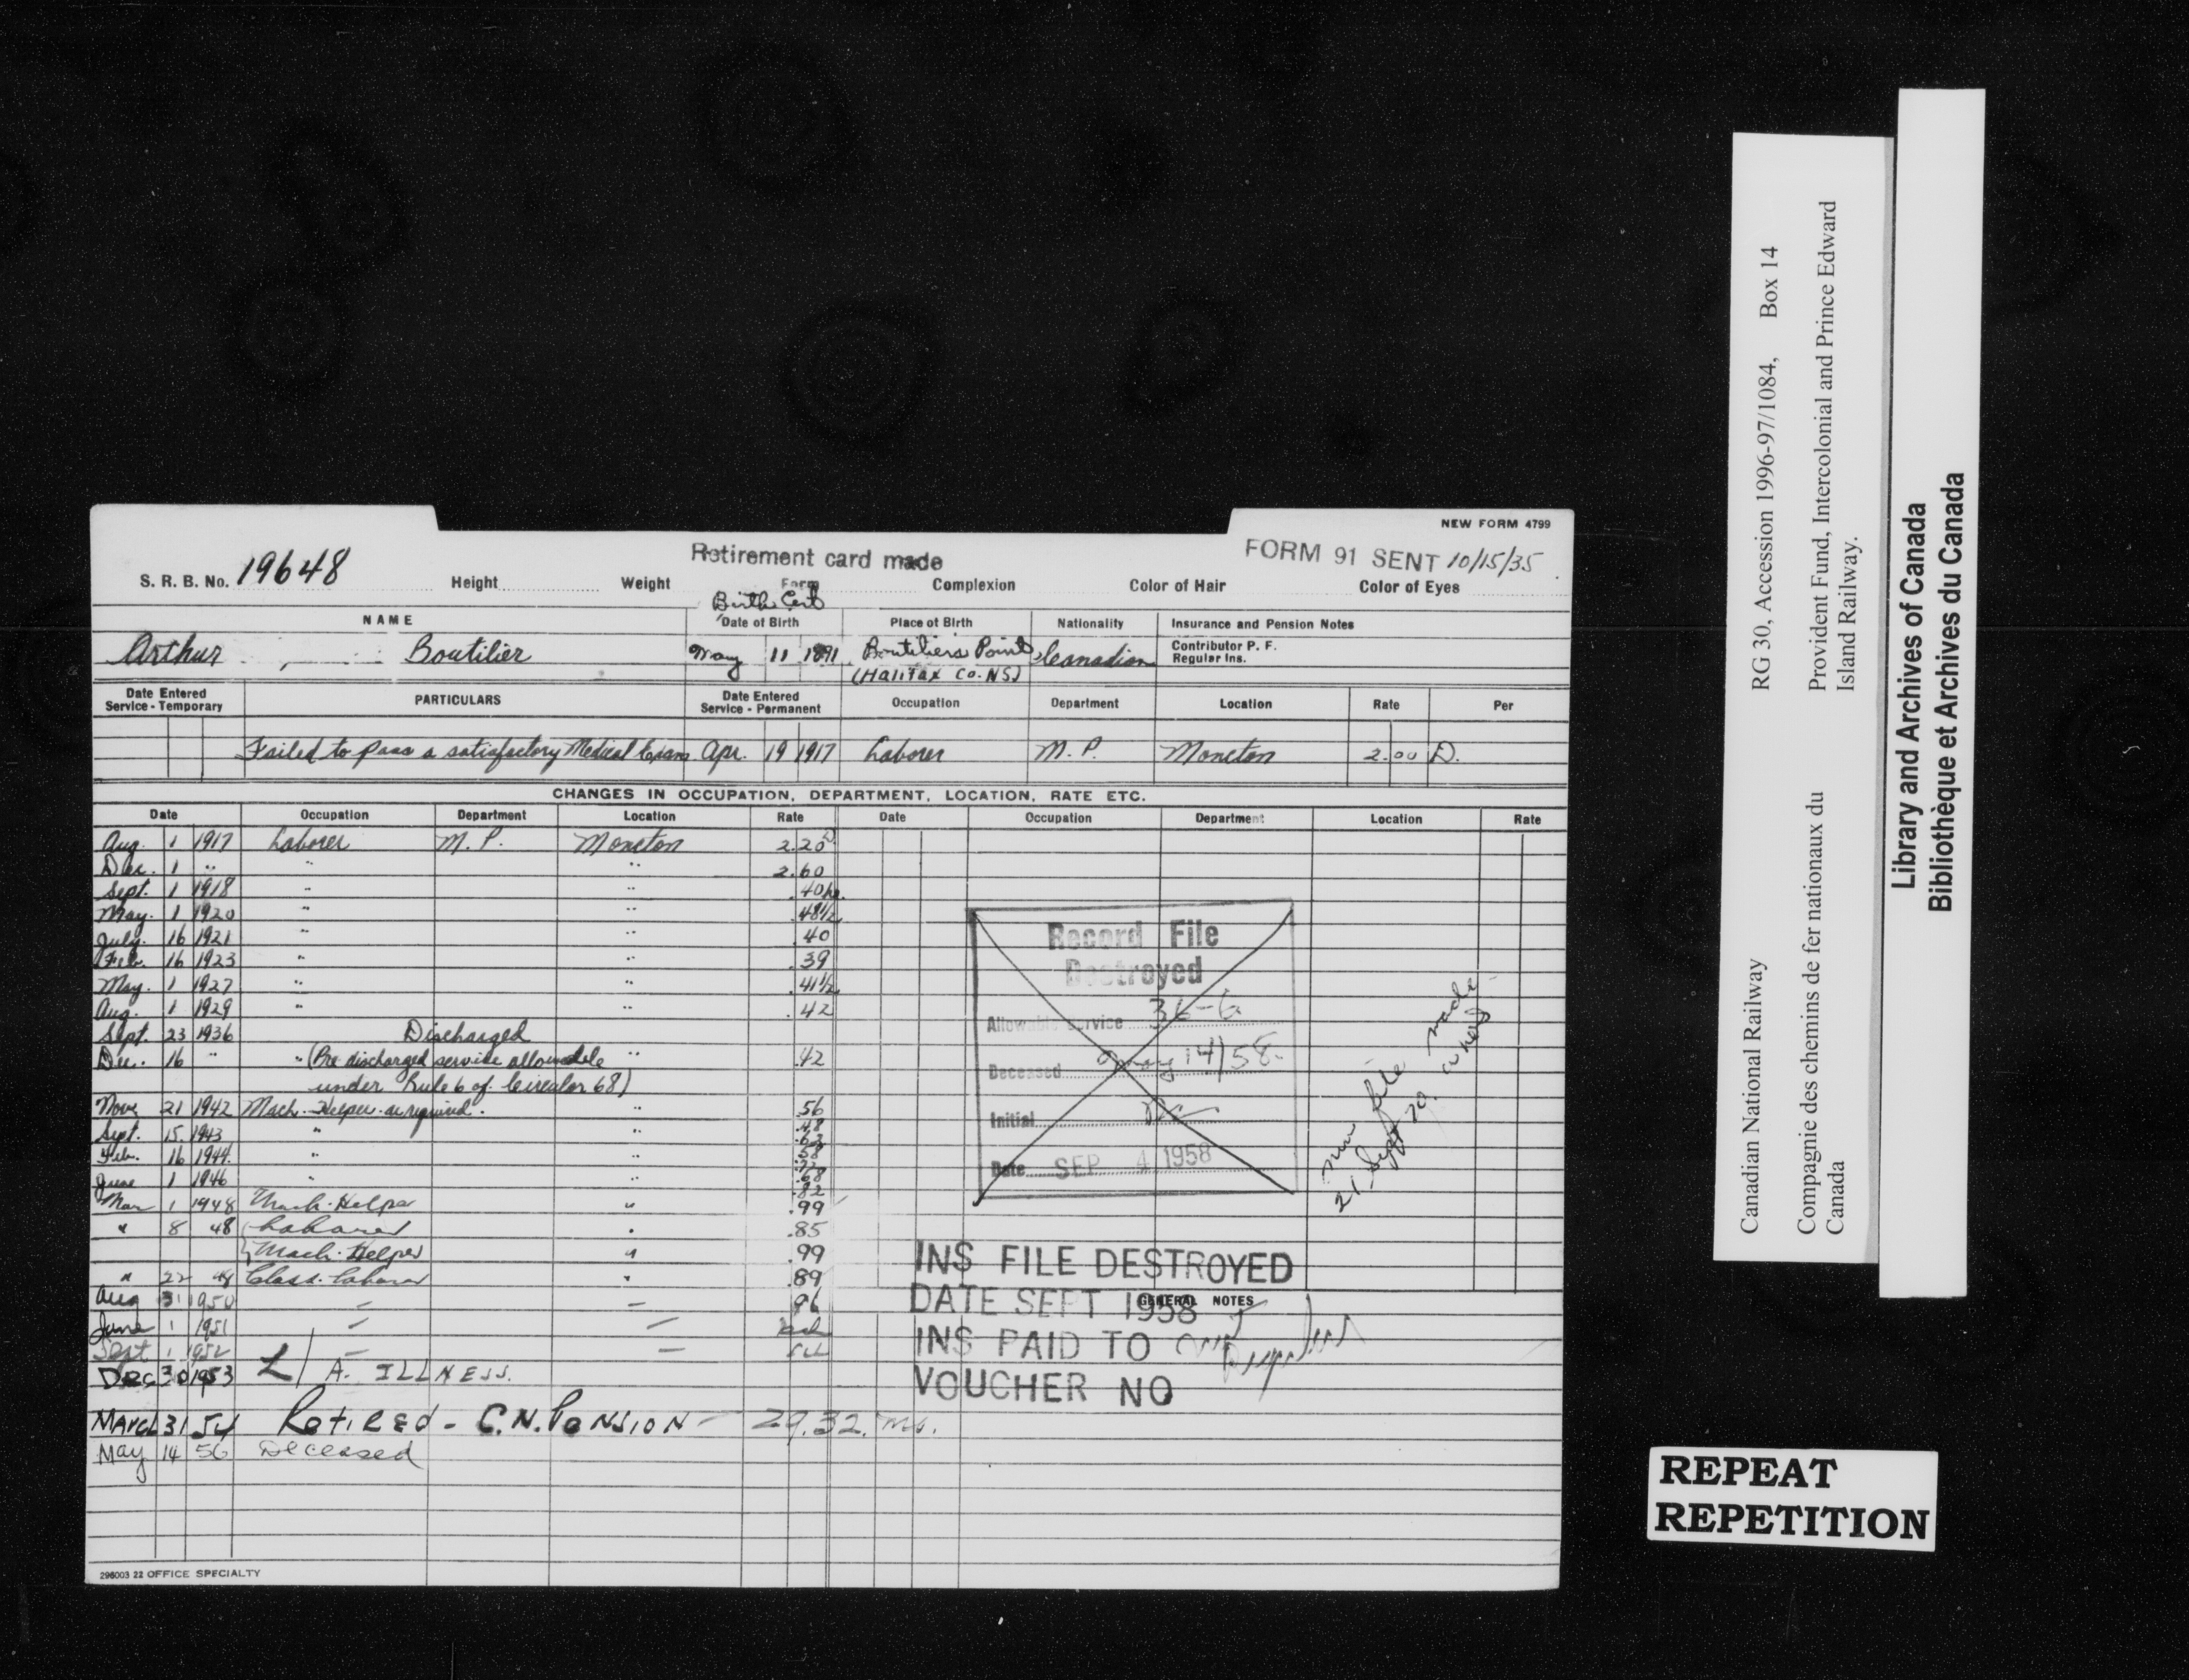 NEW FORM 4799
Retirement card made
FORM 91 SENT 10/15/35
S. R. B. No. 19648 Height Weight Form Complexion Color of Hair Color of Eyes
Birth Cert
NAME Date of Birth Place of Birth Nationality Insurance and Pension Notes
Arthur Boutilier May 11 1891 Boutiliers Point Canadian Contributor P. F.
(Halifax Co. NS) Regular Ins.
Date Entered Service - Temporary PARTICULARS Date Entered Service - Permanent Occupation Department Location Rate Per
Failed to pass a satisfactory Medical Exam. Apr. 19 1917 Laborer M. P. Moncton 2.00 D.
CHANGES IN OCCUPATION, DEPARTMENT, LOCATION, RATE ETC.
Date Occupation Department Location Rate Date Occupation Department Location Rate
Aug. 1 1917 Laborer M. P. Moncton 2.20 D
Dec. 1 " " " 2.60
Sept. 1 1918 " " .40 hr.
May. 1 1920 " " .48½
July. 16 1921 " " .40
Feb. 16 1923 " " .39
May. 1 1927 " " .41½
Aug. 1 1929 " " .42
Sept. 23 1936 Discharged
Dec. 16 " " (Pre discharged service allowable " .42
under Rule 6 of Circular 68)
Nov. 21 1942 Mach. Helper as required. " .56
Sept. 15 1943 " " .48
.63
Feb. 16 1944 " " .58
June 1 1946 " " .68
.82
Mar 1 1948 Mach. Helper " .99
" 8 48 Laborer " .85
Mach. Helper " .99
" 22 48 Class. Laborer " .89
Aug 31 1950 — — .96
June 1 1951 — —
Sept 1 1952 — —
Dec 30 1953 L/A. ILLNESS.
March 31 54 Retired - C.N. Pension - 29.32 mo.
May 14 56 Deceased
Record File
Destroyed
Allowable Service 36-6
Deceased May 14/58
Initial
Date SEP 4 1958
new file made
21 Sept 70.
INS FILE DESTROYED
DATE SEPT 1958
GENERAL NOTES
INS PAID TO
VOUCHER NO
296003 22 OFFICE SPECIALTY
Canadian National Railway RG 30, Accession 1996-97/1084, Box 14
Compagnie des chemins de fer nationaux du Canada
Provident Fund, Intercolonial and Prince Edward Island Railway.
Library and Archives of Canada
Bibliothèque et Archives du Canada
REPEAT
REPETITION